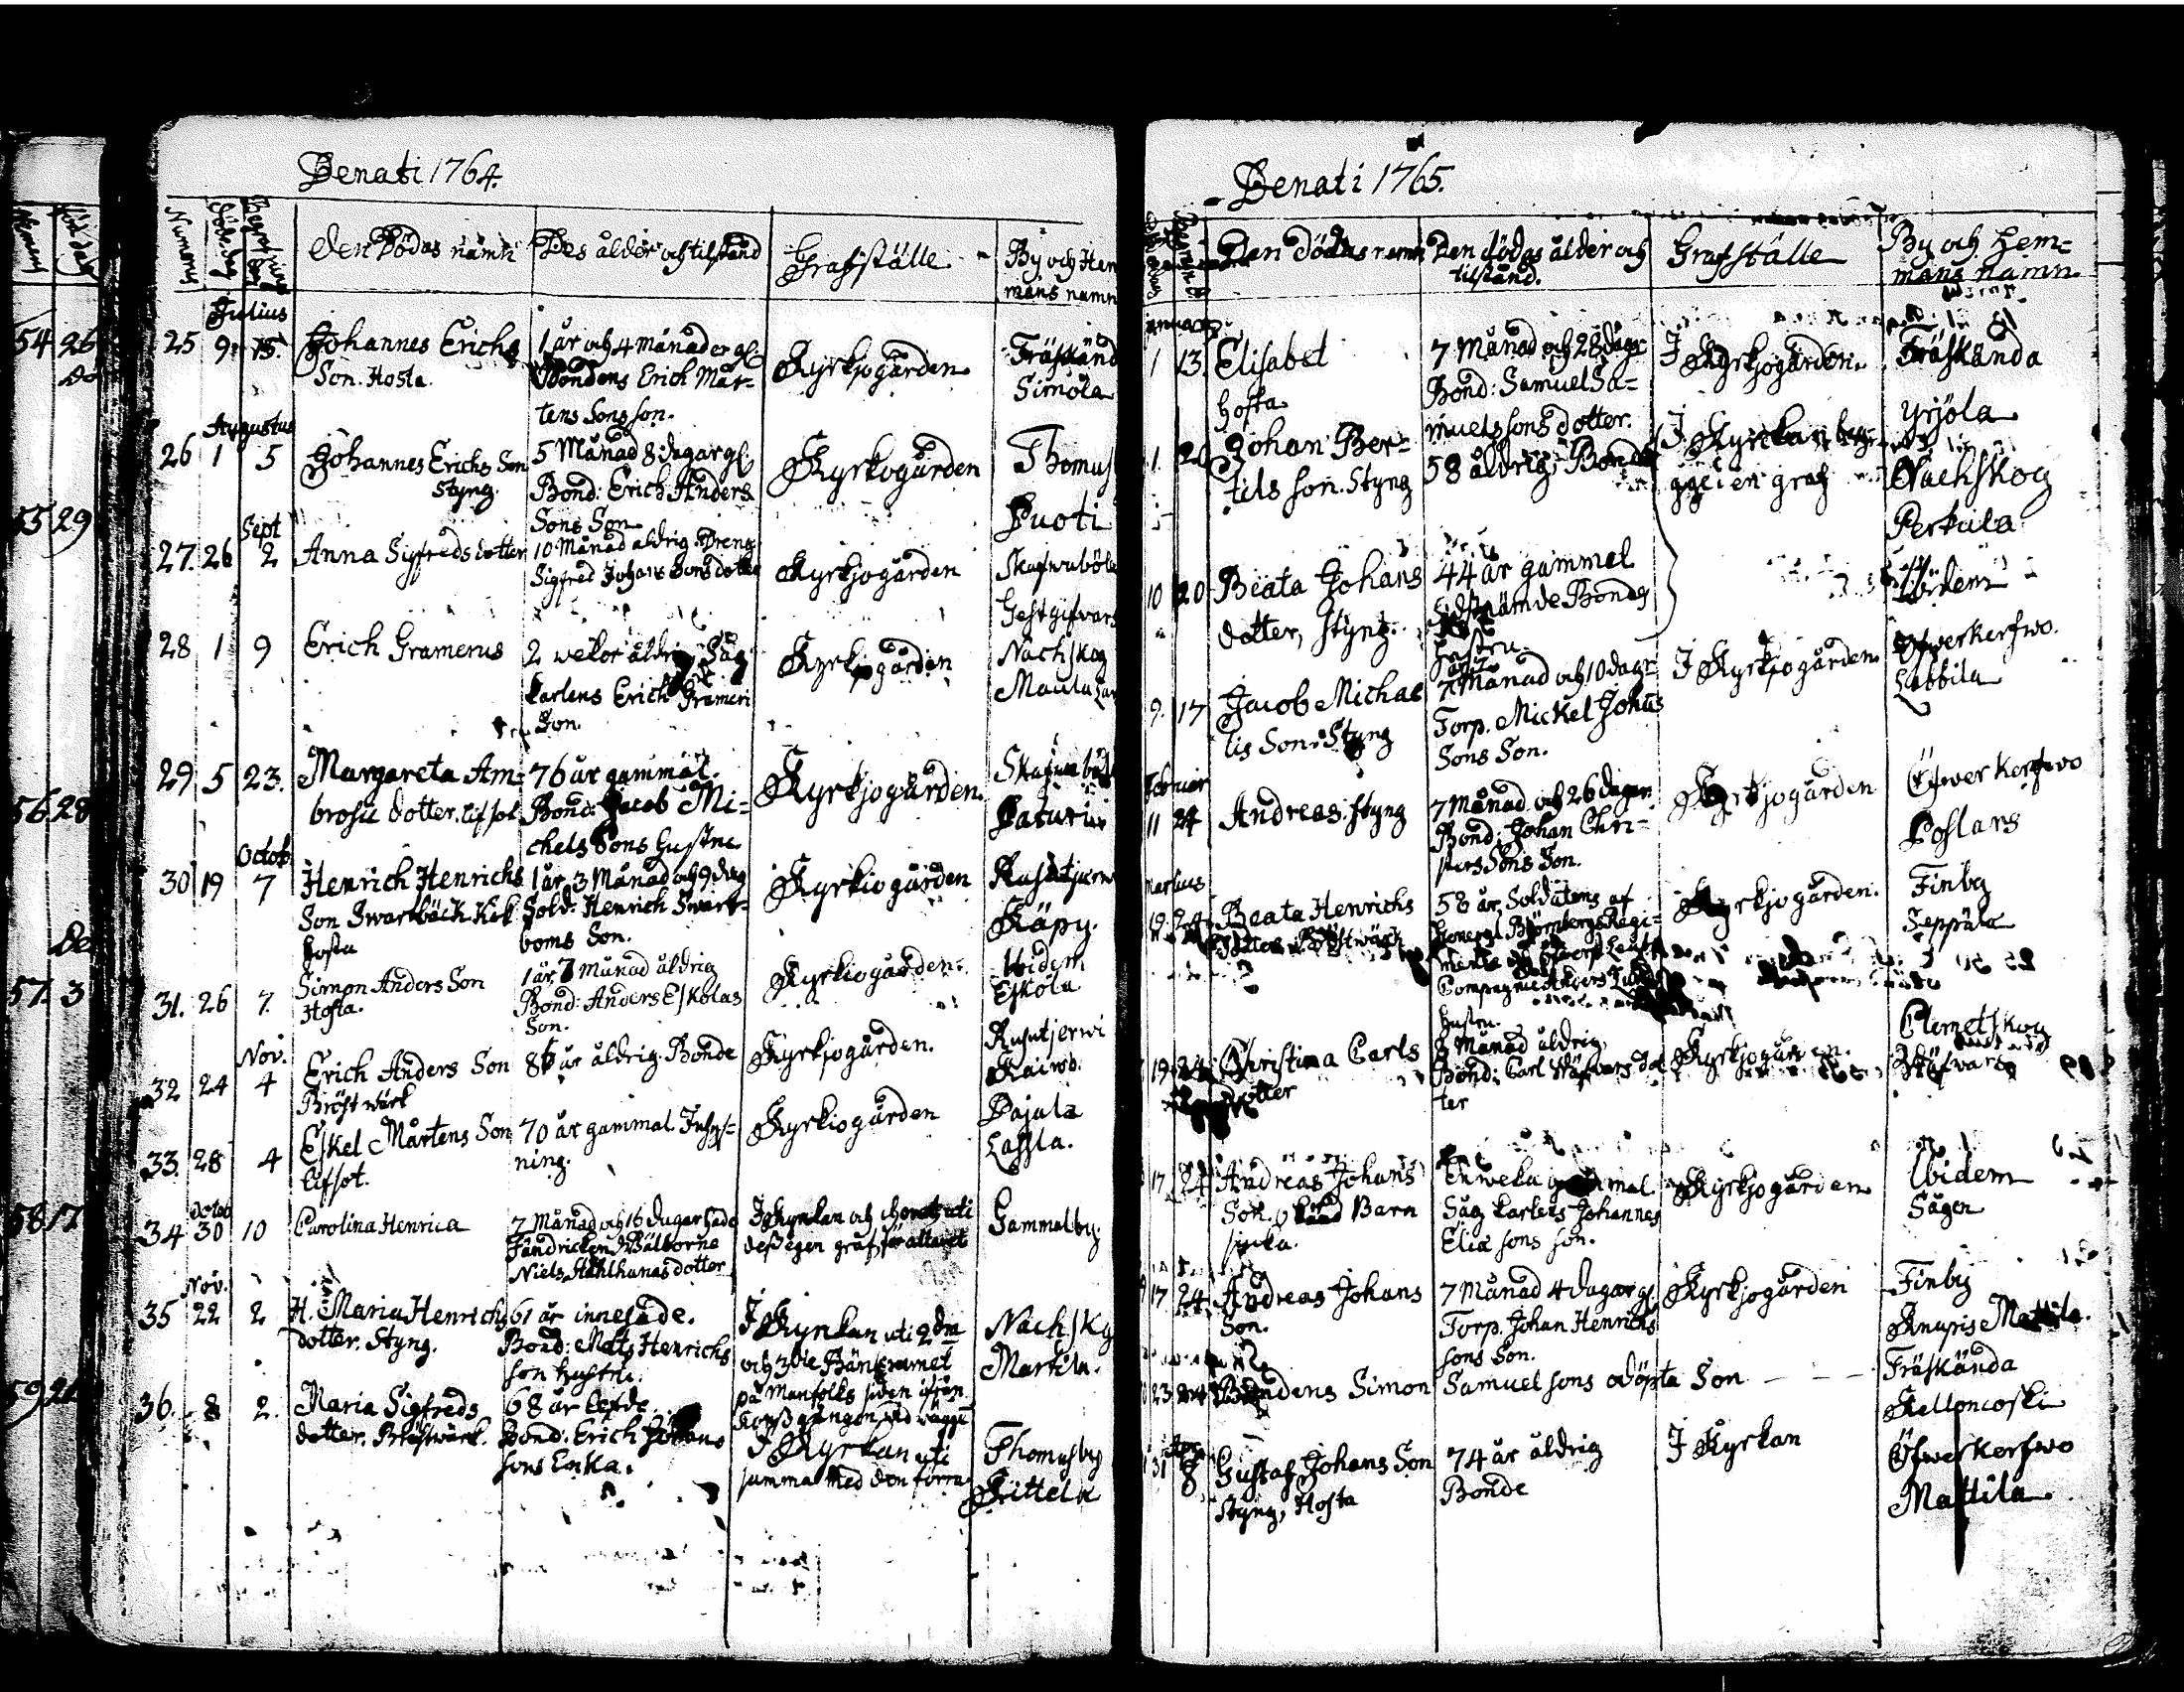 Denati 1764.
Numerus
Begrafnings dag
Den Dödas namn
Des ålder och tilstånd
Grafställe
By och Hem
mans namn
Julius
25 9 15. Johannes Erichs
Son. Hosta.
1 år och 4 månader gl.
Bondens Erich Mår-
tens Sons son.
Kyrkjogården.
Fräskänd
Simola
Augustus
26 1 5 Johannes Erichs Son
Styng.
5 Månad 8 dagar gl.
Bond: Erich Anders
Sons Son
Kyrkogården
Thomas
Puoti
Sept
27. 26 2 Anna Sigfreds dotter
10 Månad åldrig. Dreng
Sigfred Johans Sons dotter
Kyrkjogården
Gestgifvars
28 1 9 Erich Gramerus
2 wekor åldrig Såg
karlens Erich Grameri
Son.
Kyrkjogården
Nachskog
29 5 23. Margareta Am-
brosii dotter. lifsot
76 år gammal.
Bond: Jacob Mi-
chels Sons Hustru.
Kyrkjogården.
Octob.
30 19 7 Henrich Henrichs
Son Swartbäck. Kik
hosta
1 år 3 Månad och 9 dag
Sold: Henrich Swart-
boms Son.
Kyrkiogården
Käpy.
31. 26 7. Simon Anders Son
Hosta.
1 år, 7 månad åldrig
Bond: Anders Eskolas
Son.
Kyrkiogården.
Ibidem
Eskola
Nov.
32 24 4 Erich Anders Son
Bröstwärk
år åldrig. Bonde
Kyrkjogården.
Rusutjerwi
33. 28 4 Eskel Mårtens Son
lifsot.
70 år gammal. Inhys-
ning.
Kyrkiogården
Pajula
Lassla.
Octob
34 30 10 Carolina Henrica
7 Månad och 16 dagar
Fändricken Wälborne
Niels dotter
I Kyrkan och uti
dess egen graf, för altaret
Gammalby.
Nov.
35 22 2 H. Maria Henrichs
dotter. Styng.
61 år
Bond: Mats Henrichs
son hustru.
I Kyrkan uti 2dra
och 3die Bänk
på Manfolks siden ifrån
Nachskg
Martila.
36. 8 2. Maria Sigfreds
dotter. Bröstwärk.
68 år lefde.
Bond: Erich Johans
sons Enka.
I Kyrkan uti
samma med den förra
Thomasby
Frittela
Denati 1765.
Den Dödas namn
Den dödas ålder och
tilstånd.
Grafställe
By och Hem-
mans namn
Januarj.
1 13. Elisabet
hosta
7 Månad och 28 dagar
Bond: Samuel Sa-
muels sons dotter.
I Kyrkjogården.
Fräskända
Yrjöla
1. 20 Johan Ber-
tils son. Styng
58 åldrig, Bonde
I Kyrkan
Nachskog
Perkula
10 20 Beata Johans
dotter, styng.
44 år gammel
Bondes
hustru
Ibidem
9. 17 Jacob Michae
lis Son. Styng
7 Månad och 10 dagr.
Torp. Mickel Johans
Sons Son.
I Kyrkjogården.
Öfwerkerfwo.
Labbila
Februar
11 24 Andreas. styng
7 Månad och 26 dagar.
Bond: Johan Chri-
sters Sons Son.
Kyrkjogården
Öfwer kerfwo
Poslars
Martius
19. 24 Beata Henrichs
58 år, Soldatens af
Björnborgs Regi-
Hustru.
Kyrkjogården.
Finby
Seppälä
19 24 Christina Carls
dotter
Månad åldrig,
Bond: Carl dot
ter
Kyrkjogården.
Clemetskog
17 24 Andreas Johans
Son. Barn
sjuka.
En weka gammal.
Såg karlens Johannes
Eliæ sons son.
Kyrkjogården
Ibidem
Sågen
17 24 Andreas Johans
Son.
7 Månad 4 dagar gl.
Torp. Johan Henrichs
sons Son.
Kyrkjogården
Finby
Knapis Mattila.
23 24 Bondens Simon Samuel sons odöpta Son - - -
Fräskända
Kelloncoski
31 8 Gustaf Johans Son
Styng, Hosta
74 år åldrig
Bonde
I Kyrkan
Öfwerkerfwo
Mattila.
54 26
55 29
56 28
57. 3
58 17
59